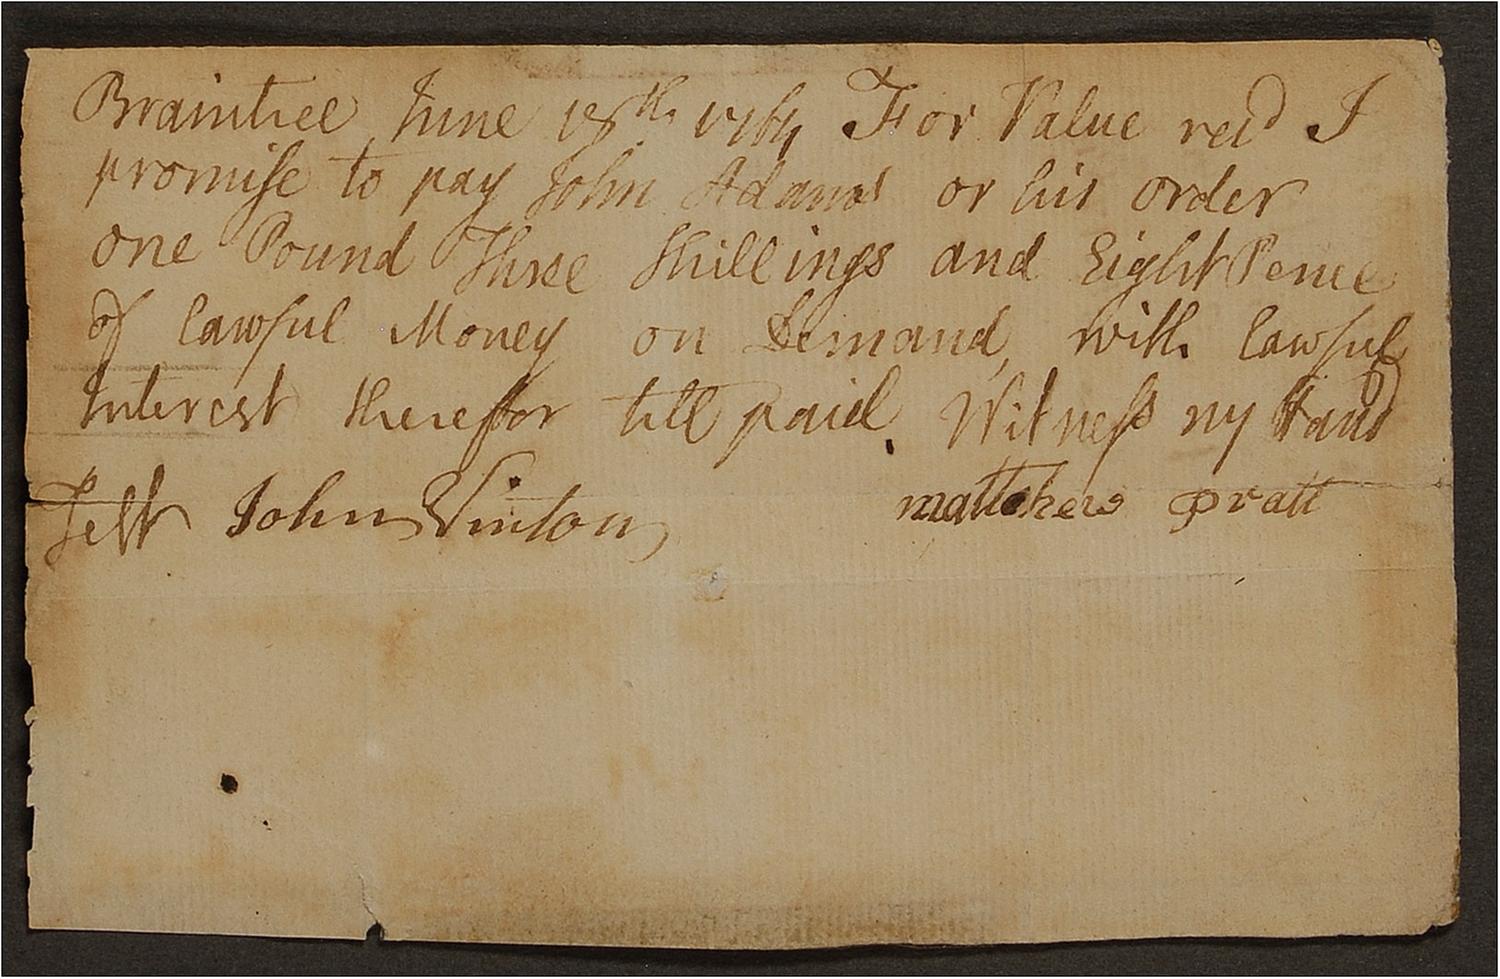 Braintree June 18th 1764 For Value recd I
promise to pay John Adams or his order
one Pound Three Shillings and Eight Pence
of lawful Money on Demand, with lawful
Interest therefor till paid. Witness my Hand
Test John Vinton matthew pratt